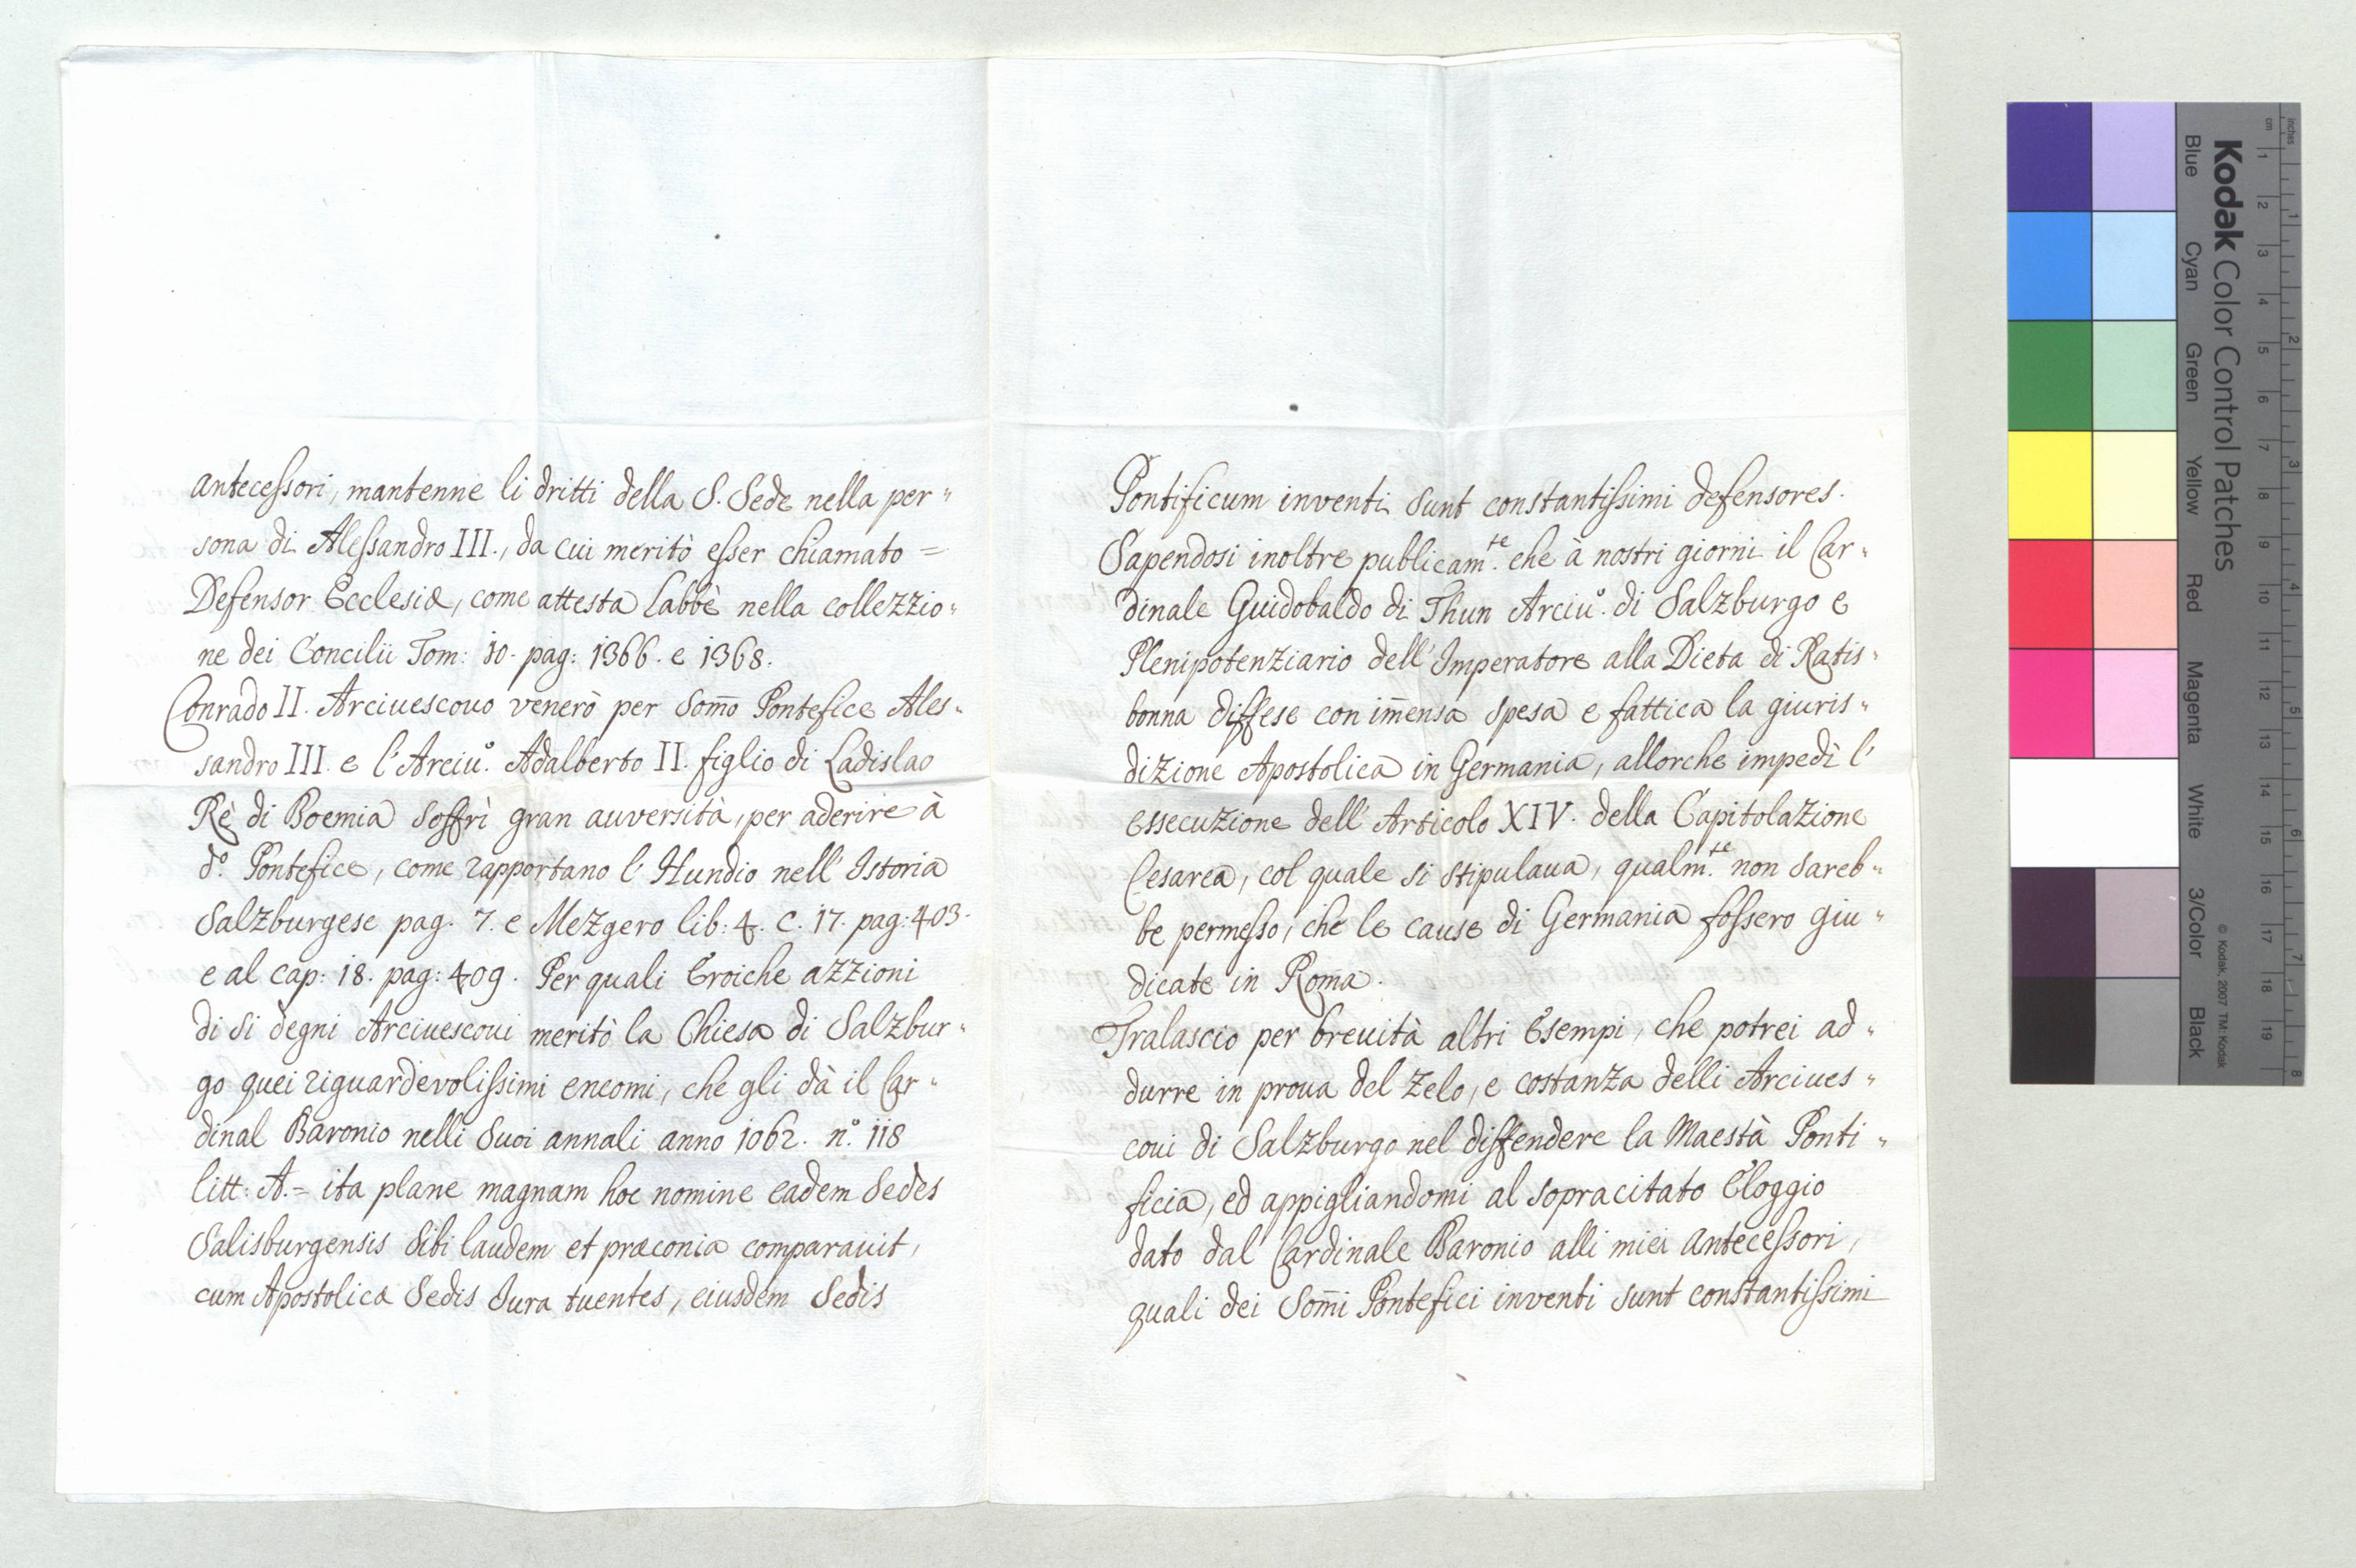 antecessori, mantenne li dritti della S. Sede nella per„
sona di Alessandro III., da cui meritò esser chiamato =
Defensor Ecclesiæ, come attesta Labbè nella collezzio„
ne dei Concilii Tom: 10. pag: 1366. e 1368.
Conrado II. Arciuescouo venerò per Som̄o Pontefice Ales„
sandro III. e l'Arciuº. Adalberto II. figlio di Ladislao
Rè di Boemia soffrì gran auversità, per aderire à
dº. Pontefice, come rapportano l'Hundio nell'Istoria
Salzburgese pag. 7. e Mezgero lib: 4. c. 17. pag: 403.
e al cap: 18. pag: 409. Per quali Eroiche azzioni
di si degni Arciuescoui meritò la Chiesa di Salzbur„
go quei riguardevolissimi encomi, che gli dà il Car„
dinal Baronio nelli Suoi annali anno 1062. nº. 118
litt: A. = ita plane magnam hoc nomine eadem Sedes
Salisburgensis Sibi laudem et præconia comparauit,
cum Apostolicæ Sedis Jura tuentes, eiusdem Sedis
Pontificum inventi sunt constantissimi defensores.
Sapendosi inoltre publicamᵗᵉ. che à nostri giorni il Car„
dinale Guidobaldo di Thun Arciuº. di Salzburgo e
Plenipotenziario dell'Imperatore alla Dieta di Ratis„
bonna diffese con im̄ensa spesa e fattica la giuris„
dizione Apostolica in Germania, allorche impedì l'
essecuzione dell'Articolo XIV. della Capitolazione
Cesarea, col quale si stipulaua, qualmᵗᵉ. non sareb„
be permesso, che le cause di Germania fossero giu„
dicate in Roma.
Tralascio per breuità altri Esempi, che potrei ad„
durre in proua del Zelo, e costanza delli Arciues„
coui di Salzburgo nel diffendere la Maestà Ponti„
ficia, ed appigliandomi al sopracitato Eloggio
dato dal Cardinale Baronio alli miei antecessori,
quali dei Som̄i Pontefici inventi sunt constantissimi
Kodak Color Control Patches
Blue Cyan Green Yellow Red Magenta White 3/Color Black
© Kodak, 2007 TM: Kodak
inches 1 2 3 4 5 6 7 8
cm 1 2 3 4 5 6 7 8 9 10 11 12 13 14 15 16 17 18 19